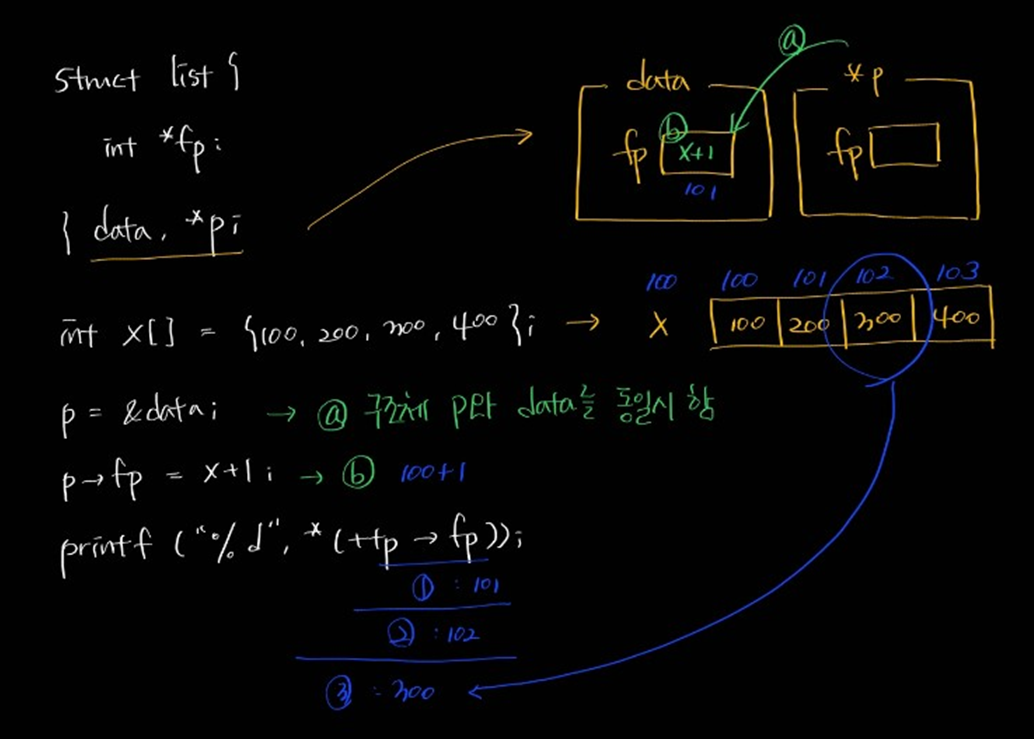 struct list {
int *fp;
} data, *p;
data
*p
ⓐ
ⓑ
fp x+1
101
fp
int x[] = {100, 200, 300, 400}; →
100 100 101 102 103
x 100 200 300 400
p = &data; → ⓐ 구조체 p와 data를 동일시 함
p→fp = x+1; → ⓑ 100+1
printf ("%d", *(++p→fp));
① : 101
② : 102
③ : 300